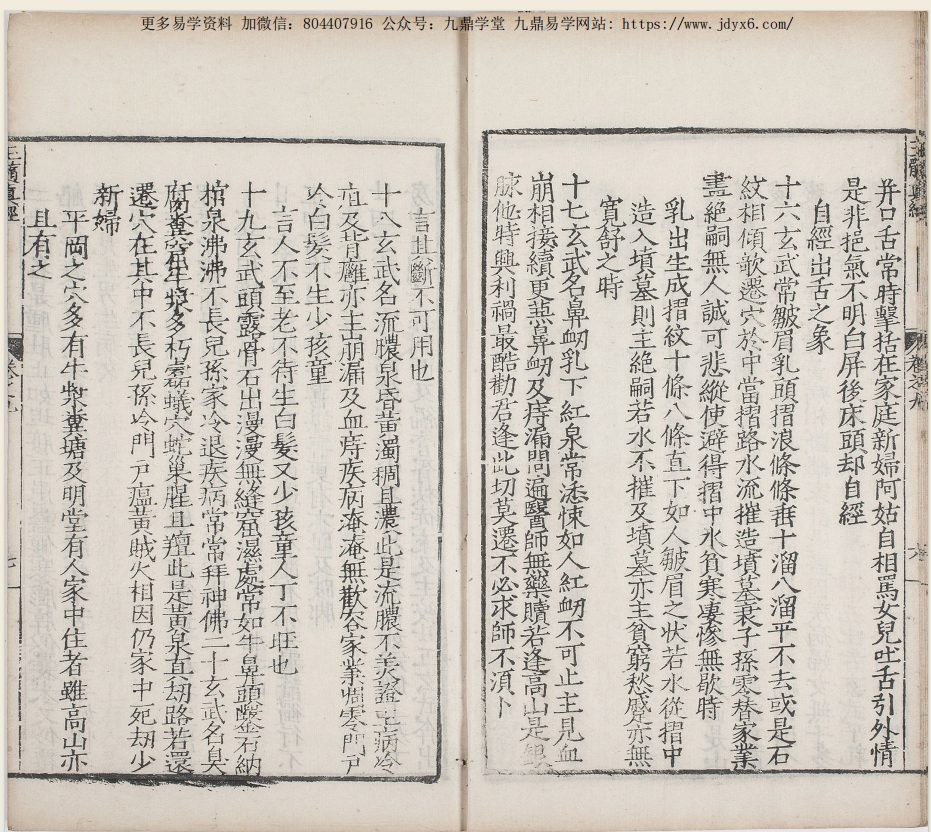 更多易学资料 加微信：804407916 公众号：九鼎学堂 九鼎易学网站：https://www.jdyx6.com/
并口舌常時擊括在家庭新婦阿姑自相罵女兒吐舌引外情
是非挹氣不明白屏後床頭却自經
自經出舌之象
十六玄武常皺眉乳頭摺浪條條垂十溜八溜平不去或是石
紋相傾欹遷穴於中當摺路水流摧造墳墓衰子孫零替家業
盡絕嗣無人誠可悲縱使避得摺中水貧寒凄慘無歇時
乳出生成摺紋十條八條直下如人皺眉之狀若水從摺中
造入墳墓則主絕嗣若水不摧及墳墓亦主貧窮愁蹙亦無
寬舒之時
十七玄武名鼻衂乳下紅泉常添悚如人紅衂不可止主見血
崩相接續更𠔥鼻衂及痔漏問遍醫師無藥贖若逢高山是
脉他時興利禍最酷勸君逢此切莫遷不必求師不湏卜
言其斷不可用也
十八玄武名流膿泉昏黃濁稠且濃此是流膿不美證 病冷
疽及背癰亦主崩漏及血痔疾病淹淹無歡容家業凋零門戶
冷白髮不生少孩童
言人不至老不待生白髮又少孩童人丁不旺也
十九玄武頭露骨石出漫漫無縫窟濕處常如牛鼻頭鑿石納
棺泉沸沸不長兒孫家冷退疾病常常拜神佛二十玄武名臭
腐糞窖牛漿多朽蠹蟻穴蛇巢腥且羶此是黃泉真刼路若還
遷穴在其中不長兒孫冷門戶瘟黃賊火相因仍家中死刼少
新婦
平岡之穴多有牛㳜糞塘及明堂有人家中住者雖高山亦
且有之
玉髓真經
卷之九